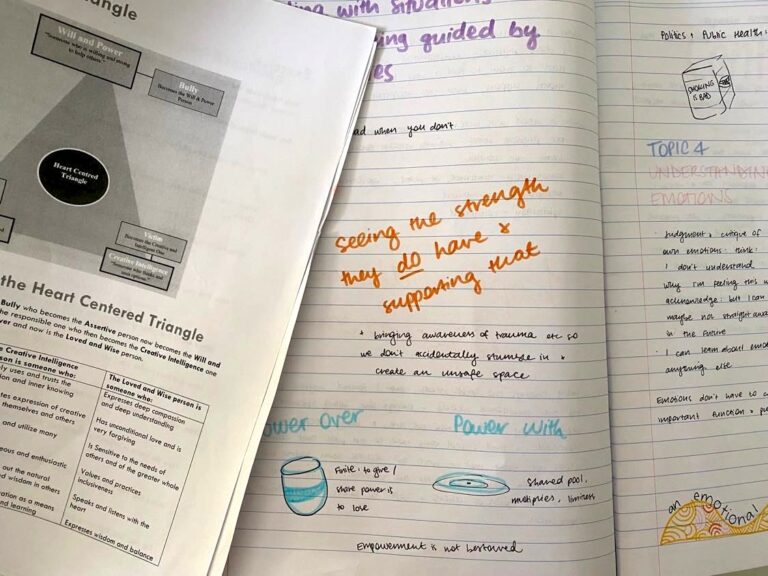 iangle
Will and Power
"Someone who is willing and strong to help others"
Bully
Becomes the Will & Power
Person
Heart Centred
Triangle
Victim
Becomes the Creative and
Intelligent One
Creative Intelligence
the Heart Centered Triangle
Bully who becomes the Assertive person now becomes the Will and
the responsible one who then becomes the Creative Intelligence one
ver and now is the Loved and Wise person.
e Creative Intelligence
son is someone who:
ly uses and trusts the
ion and inner knowing
tes expression of creative
themselves and others
and utilize many
eous and enthusiastic
out the natural
d wisdom in others
ration as a means
nd learning
The Loved and Wise person is
someone who:
Expresses deep compassion
and deep understanding
Has unconditional love and is
very forgiving
Is Sensitive to the needs of
others and of the greater whole
Values and practices
inclusiveness
Speaks and listens with the
heart
Expresses wisdom and balance
ling with situations
ing guided by
es
ad when you don't
seeing the strength
they do have &
supporting that
* bringing awareness of trauma etc so
we don't accidentally stumble in &
create an unsafe space
ower over
Power with
Finite: to give /
share power is
to lose
shared pool,
multiplies, limitless
Empowerment is not bestowed
Politics & Public Health:
SMOKING
IS BAD
TOPIC 4
UNDERSTANDING
EMOTIONS
· Judgment & critique of
own emotions: think:
I don't understand
why I'm feeling this
acknowledge: but I can
maybe not straight
in the future
· I can learn about
anything else
Emotions don't have to
important function &
an emotional